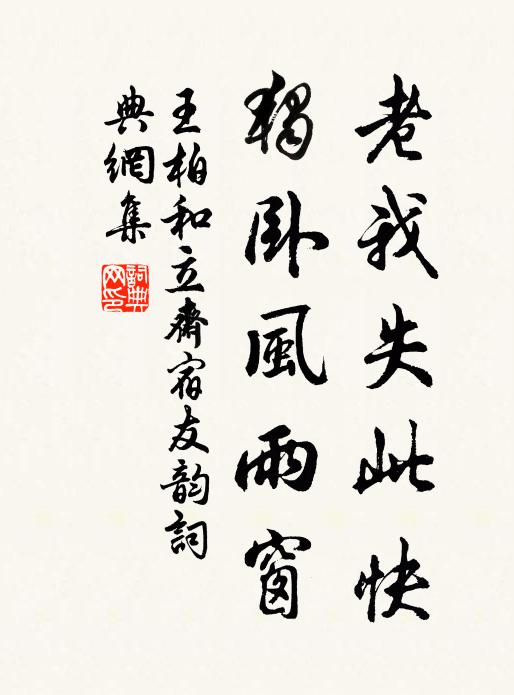 老我失此快
獨卧風雨窗
王柏和立齋宿友韵詞
典網集
詞典網印